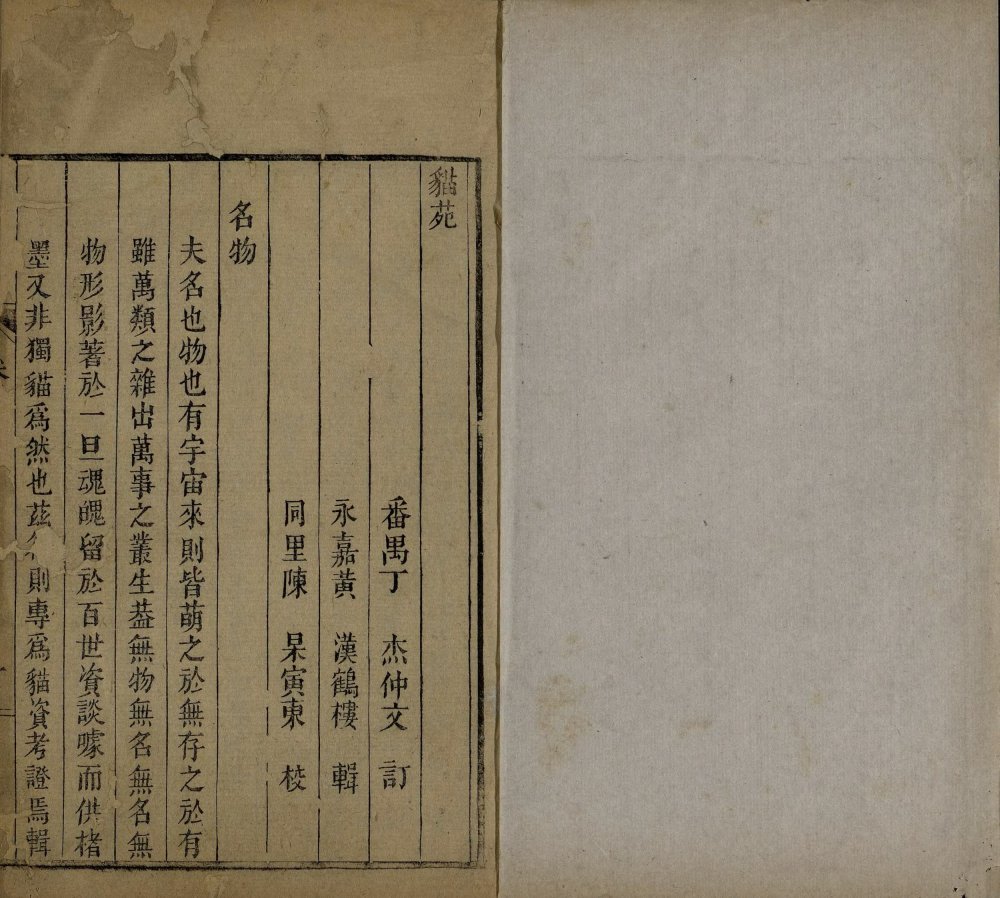 貓苑
番禺丁　杰仲文　訂
永嘉黃　漢鶴樓　輯
同里陳　杲寅東　校
名物
夫名也物也有宇宙來則皆萌之於無存之於有
雖萬類之雜出萬事之叢生葢無物無名無名無
物形影著於一旦魂魄留於百世資談噱而供楮
墨又非獨貓爲然也茲則專爲貓資考證焉輯